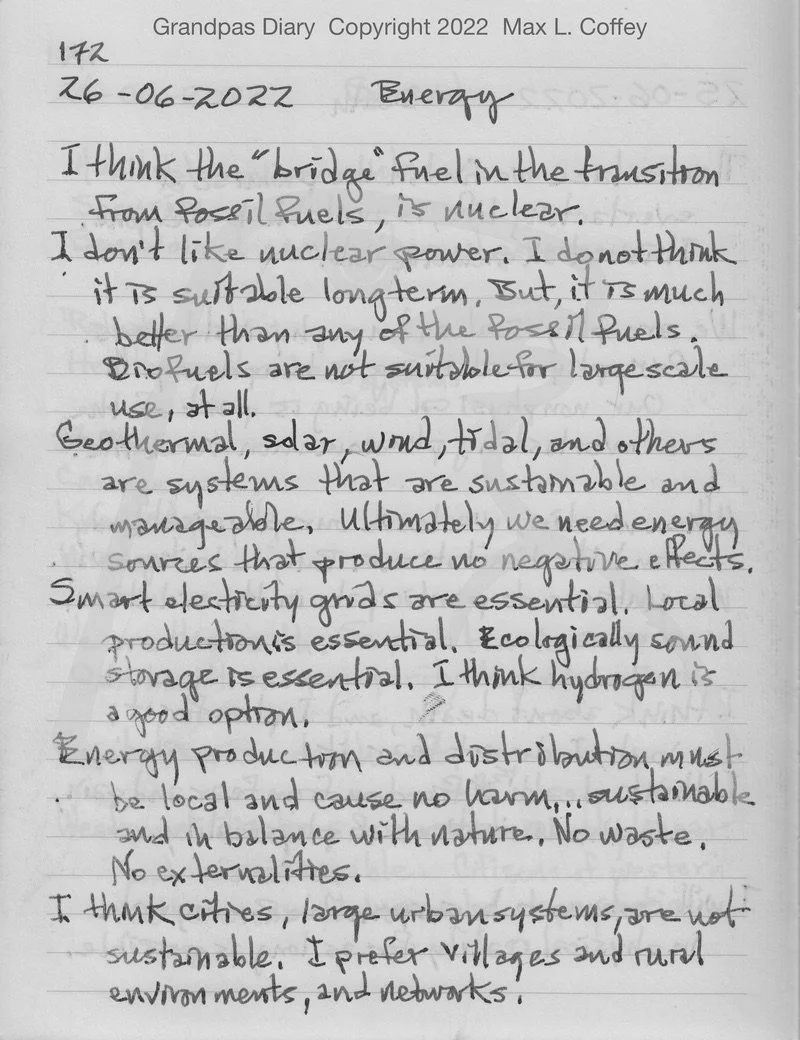 Grandpas Diary Copyright 2022 Max L. Coffey
172
26-06-2022 Energy
I think the "bridge" fuel in the transition
from fossil fuels, is nuclear.
I don't like nuclear power. I do not think
it is suitable long term. But, it is much
better than any of the fossil fuels.
Biofuels are not suitable for large scale
use, at all.
Geothermal, solar, wind, tidal, and others
are systems that are sustainable and
manageable. Ultimately we need energy
sources that produce no negative effects.
Smart electicity grids are essential. Local
production is essential. Ecologically sound
storage is essential. I think hydrogen is
a good option.
Energy production and distribution must
be local and cause no harm... sustainable
and in balance with nature. No waste.
No externalities.
I think cities, large urban systems, are not
sustainable. I prefer villages and rural
environments, and networks.